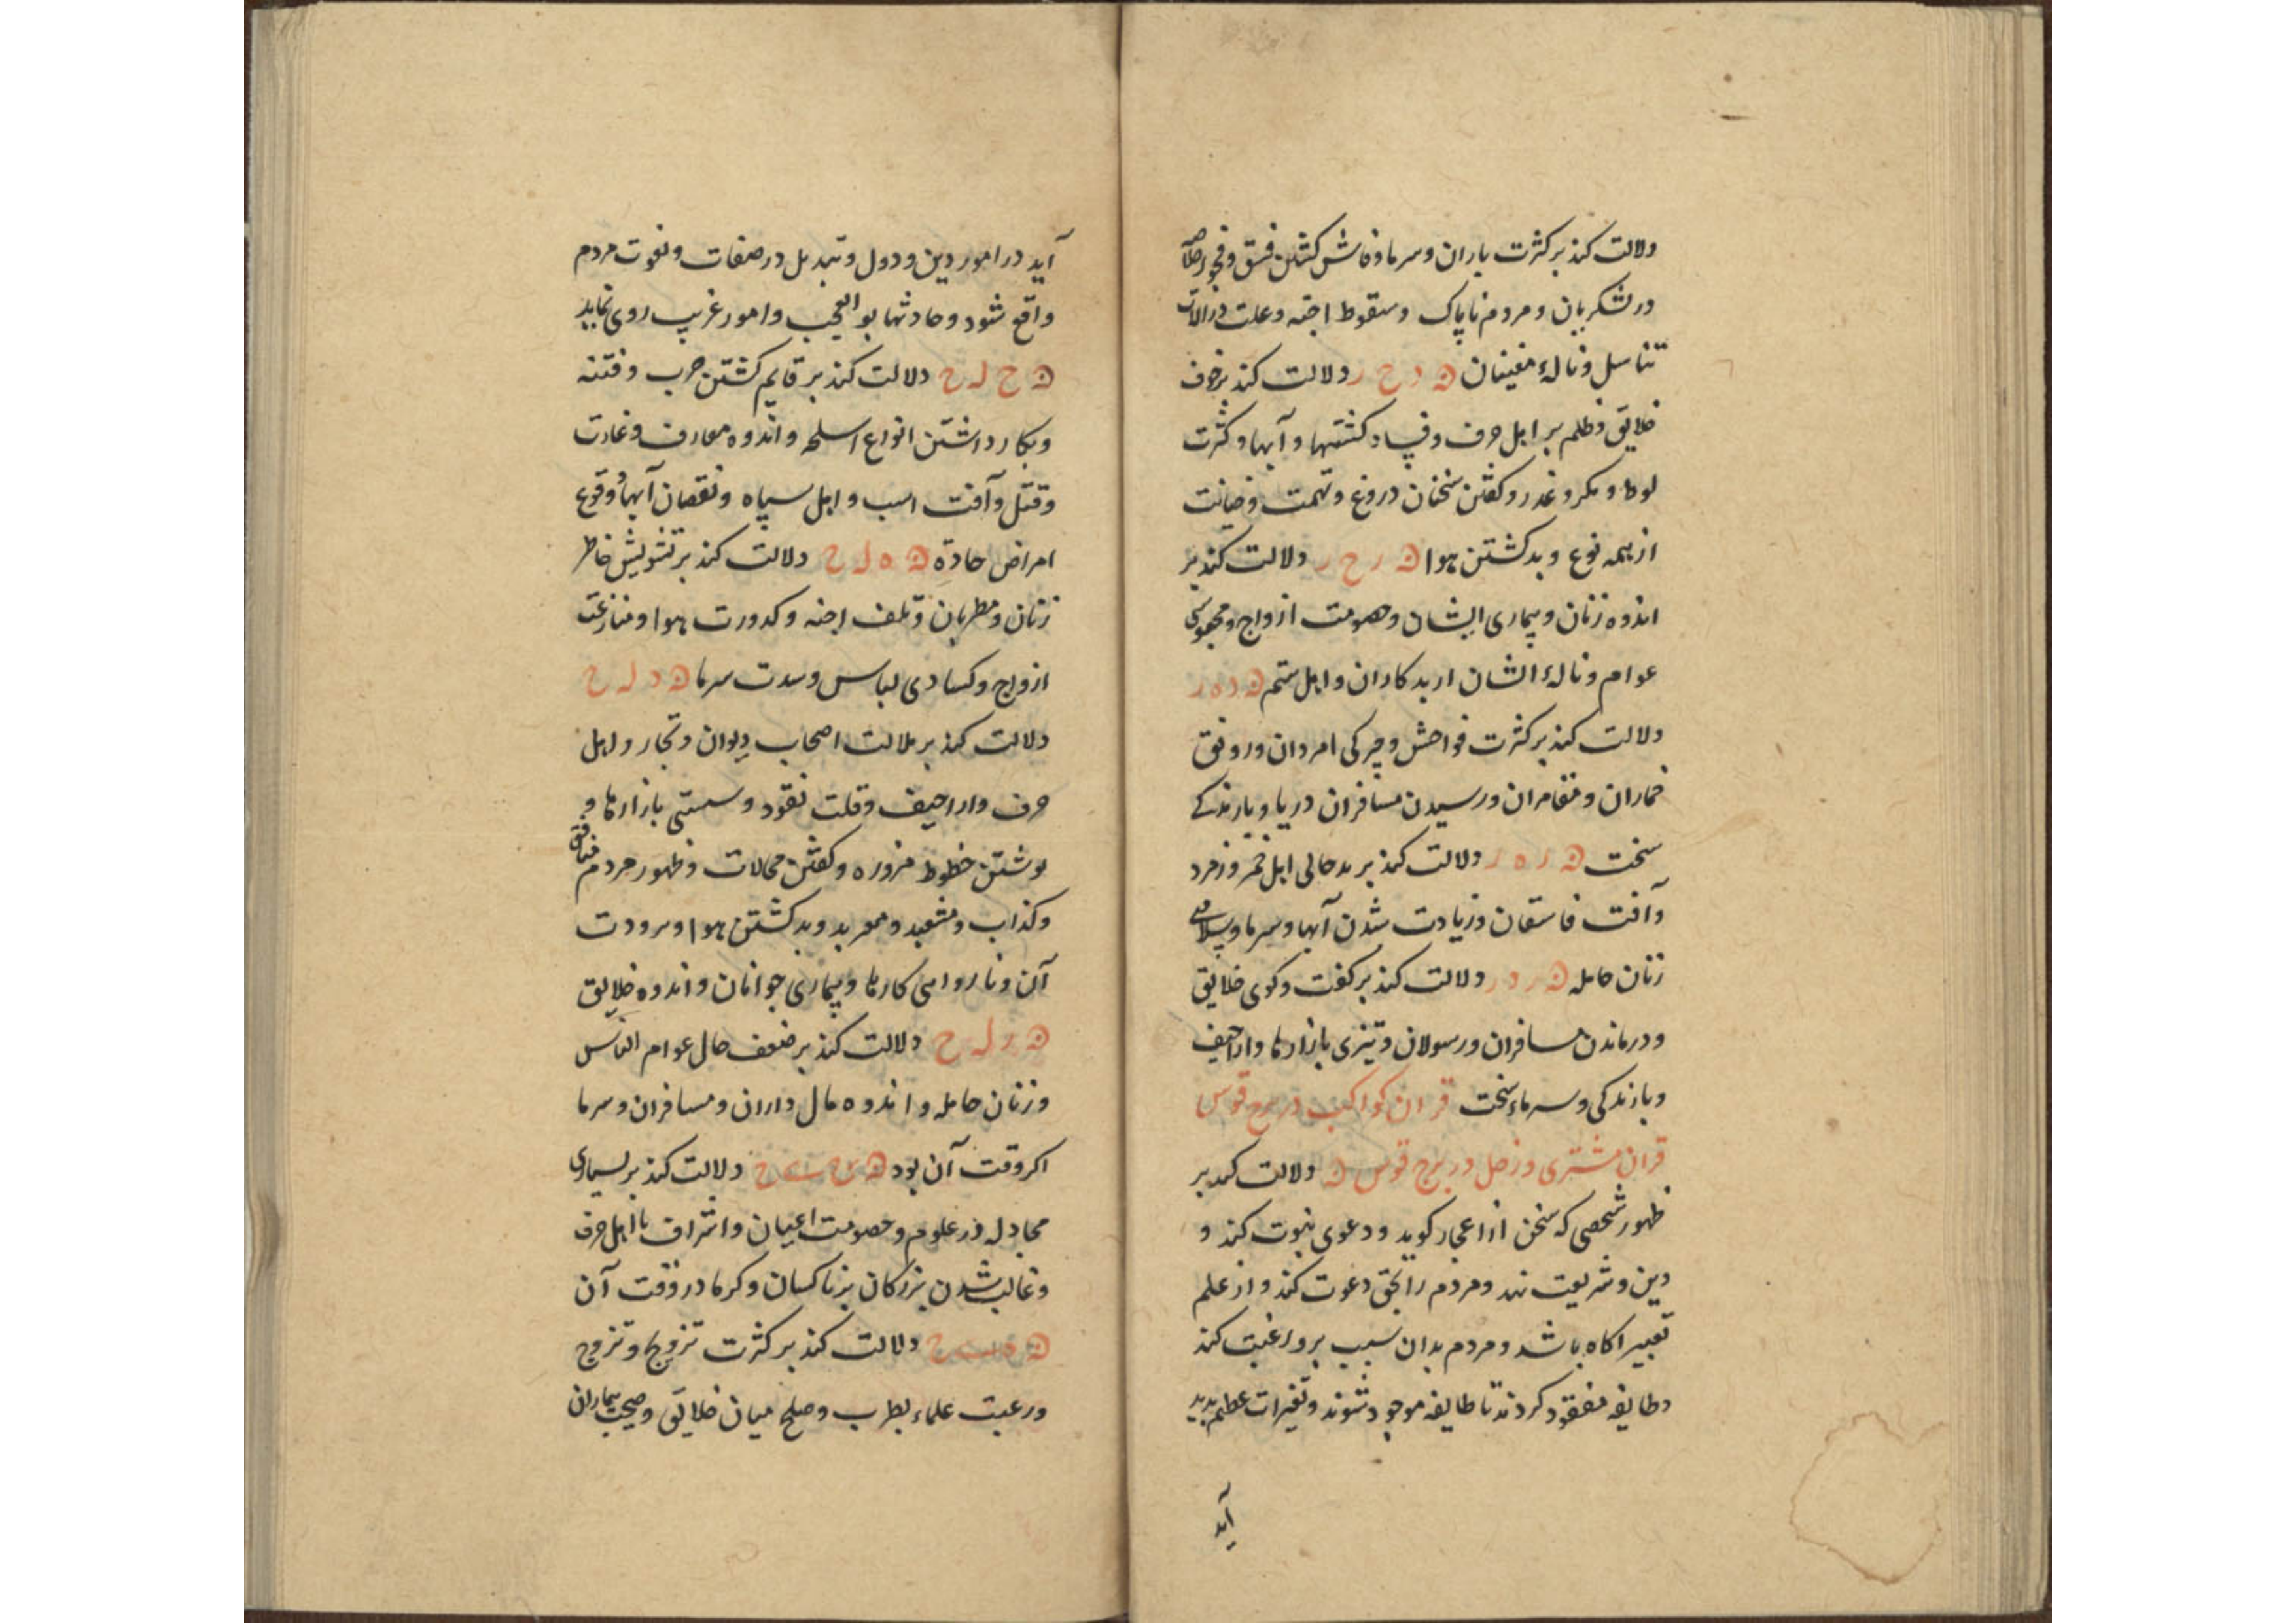 دلالت کند بر کثرت باران و سرما و فاش کشتن فسق و فجور
در لشکریان و مردم ناپاک و سقوط اجنه و علت در آلات
تناسل و نالهٔ مغنیان ه د ح ر دلالت کند بر خوف
خلایق و ظلم بر اهل حرف و فساد کشتیها و آبها و کثرت
و مکر و غدر و کفتن سخنان دروغ و تهمت و خیانت
از همه نوع و بد کشتن هوا ه ر ح ر دلالت کند بر
اندوه زنان و بیماری ایشان و خصومت ازواج و محبوسی
عوام و نالهٔ ایشان از بدکاران و اهل ستم ه د ه ر
دلالت کند بر کثرت فواحش و چیرکی امردان و رونق
خماران و مقامران و رسیدن مسافران دریا و بارندکی
سخت ه ر ه ر دلالت کند بر بدحالی اهل خمر و زمرد
و آفت فاسقان و زیادت شدن آبها و سرما و
زنان حامله ه ر د ر دلالت کند بر کفت و کوی خلایق
و درماندن مسافران و رسولان و تیزی بازارها و اراجیف
و بارندکی و سرماء سخت قران کواکب در برج قوس
قران مشتری و زحل در برج قوس ه دلالت کند بر
ظهور شخصی که سخن از اعجاز کوید و دعوی نبوت کند و
دین و شریعت نهد و مردم را بحق دعوت کند و از علم
تعبیر اکاه باشد و مردم بدان سبب برو رغبت کند
و طایفه مفقود کردند تا طایفه موجود شوند و تغیرات عظیم پدید
آید
آید در امور دین و دول و تبدیل در صفات و نعوت مردم
واقع شود و حادثها بوالعجب و امور غریب روی نماید
ه ح ل ح دلالت کند بر قایم کشتن حرب و فتنه
و بکار داشتن انواع اسلحه و اندوه معارف و غارت
و قتل و آفت اسب و اهل سپاه و نقصان آبها و وقوع
امراض حادّه ه ه ل ح دلالت کند بر تشویش خاطر
زنان و مطربان و تلف اجنه و کدورت هوا و منازعت
ازواج و کسادی لباس و شدت سرما ه د ل ح
دلالت کند بر ملالت اصحاب دیوان و تجار و اهل
حرف و اراجیف و قلت نقود و سستی بازارها و
نوشتن خطوط مزوره و کفتن محالات و ظهور مردم منافق
و کذاب و مشعبد و معربد و بد کشتن هوا و برودت
آن و ناروایی کارها و بیماری جوانان و اندوه خلایق
ه ر ل ح دلالت کند بر ضعف حال عوام الناس
و زنان حامله و اندوه مال داران و مسافران و سرما
اکر وقت آن بود ه ح ی ح دلالت کند بر بسیاری
مجادله در علوم و خصومت اعیان و اشراف با اهل حرف
و غالب شدن بزرکان بر ناکسان و کرما در وقت آن
ه ه ی ح دلالت کند بر کثرت تزویج و تزوج
و رغبت علماء بطرب و صلح میان خلایق و صحت بیماران